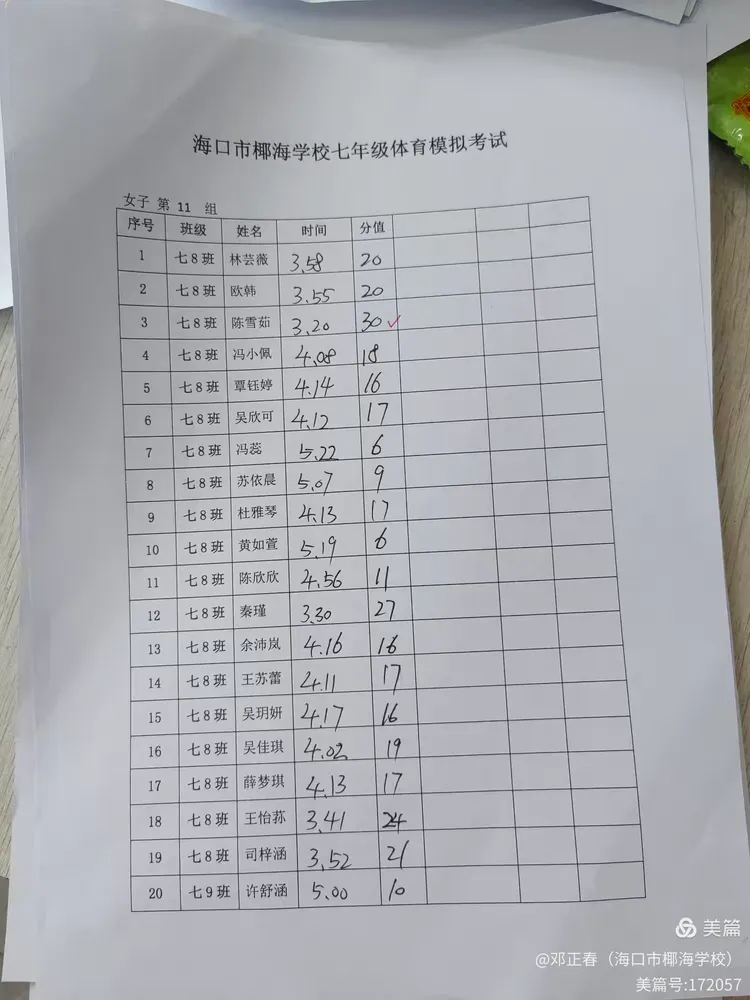 海口市椰海学校七年级体育模拟考试
女子 第 11 组
序号 班级 姓名 时间 分值
1 七8班 林芸薇 3.58 20
2 七8班 欧韩 3.55 20
3 七8班 陈雪茹 3.20 30 ✓
4 七8班 冯小佩 4.08 18
5 七8班 覃钰婷 4.14 16
6 七8班 吴欣可 4.12 17
7 七8班 冯蕊 5.22 6
8 七8班 苏依晨 5.07 9
9 七8班 杜雅琴 4.13 17
10 七8班 黄如萱 5.19 6
11 七8班 陈欣欣 4.56 11
12 七8班 秦瑾 3.30 27
13 七8班 余沛岚 4.16 16
14 七8班 王苏蕾 4.11 17
15 七8班 吴玥妍 4.17 16
16 七8班 吴佳琪 4.02 19
17 七8班 薛梦琪 4.13 17
18 七8班 王怡荪 3.41 24
19 七8班 司梓涵 3.52 21
20 七9班 许舒涵 5.00 10
美篇
@邓正春（海口市椰海学校）
美篇号:172057